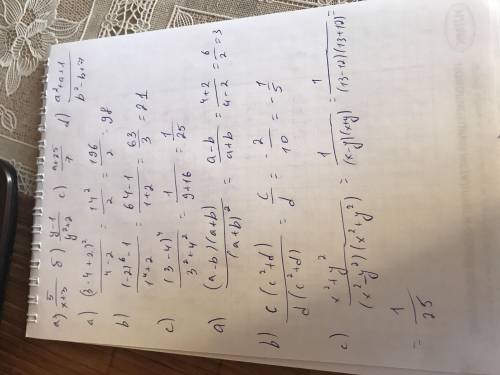 a) 5/(x+3) б) (y-1)/(y²+2) c) (n+25)/7 d) (a²+a+1)/(b²-b+7)
a) (3·4+2)²/(4-2) = 14²/2 = 196/2 = 98
b) ((-2)⁶-1)/(1⁴+2) = (64-1)/(1+2) = 63/3 = 21
c) (3-4)⁴/(3²+4²) = 1/(9+16) = 1/25
a) (a-b)(a+b)/(a+b)² = (a-b)/(a+b) = (4+2)/(4-2) = 6/2 = 3
b) c(c²+d)/d(c²+d) = c/d = -2/10 = -1/5
c) (x²+y²)/(x²-y²)(x²+y²) = 1/(x-y)(x+y) = 1/(13-12)(13+12) =
= 1/25